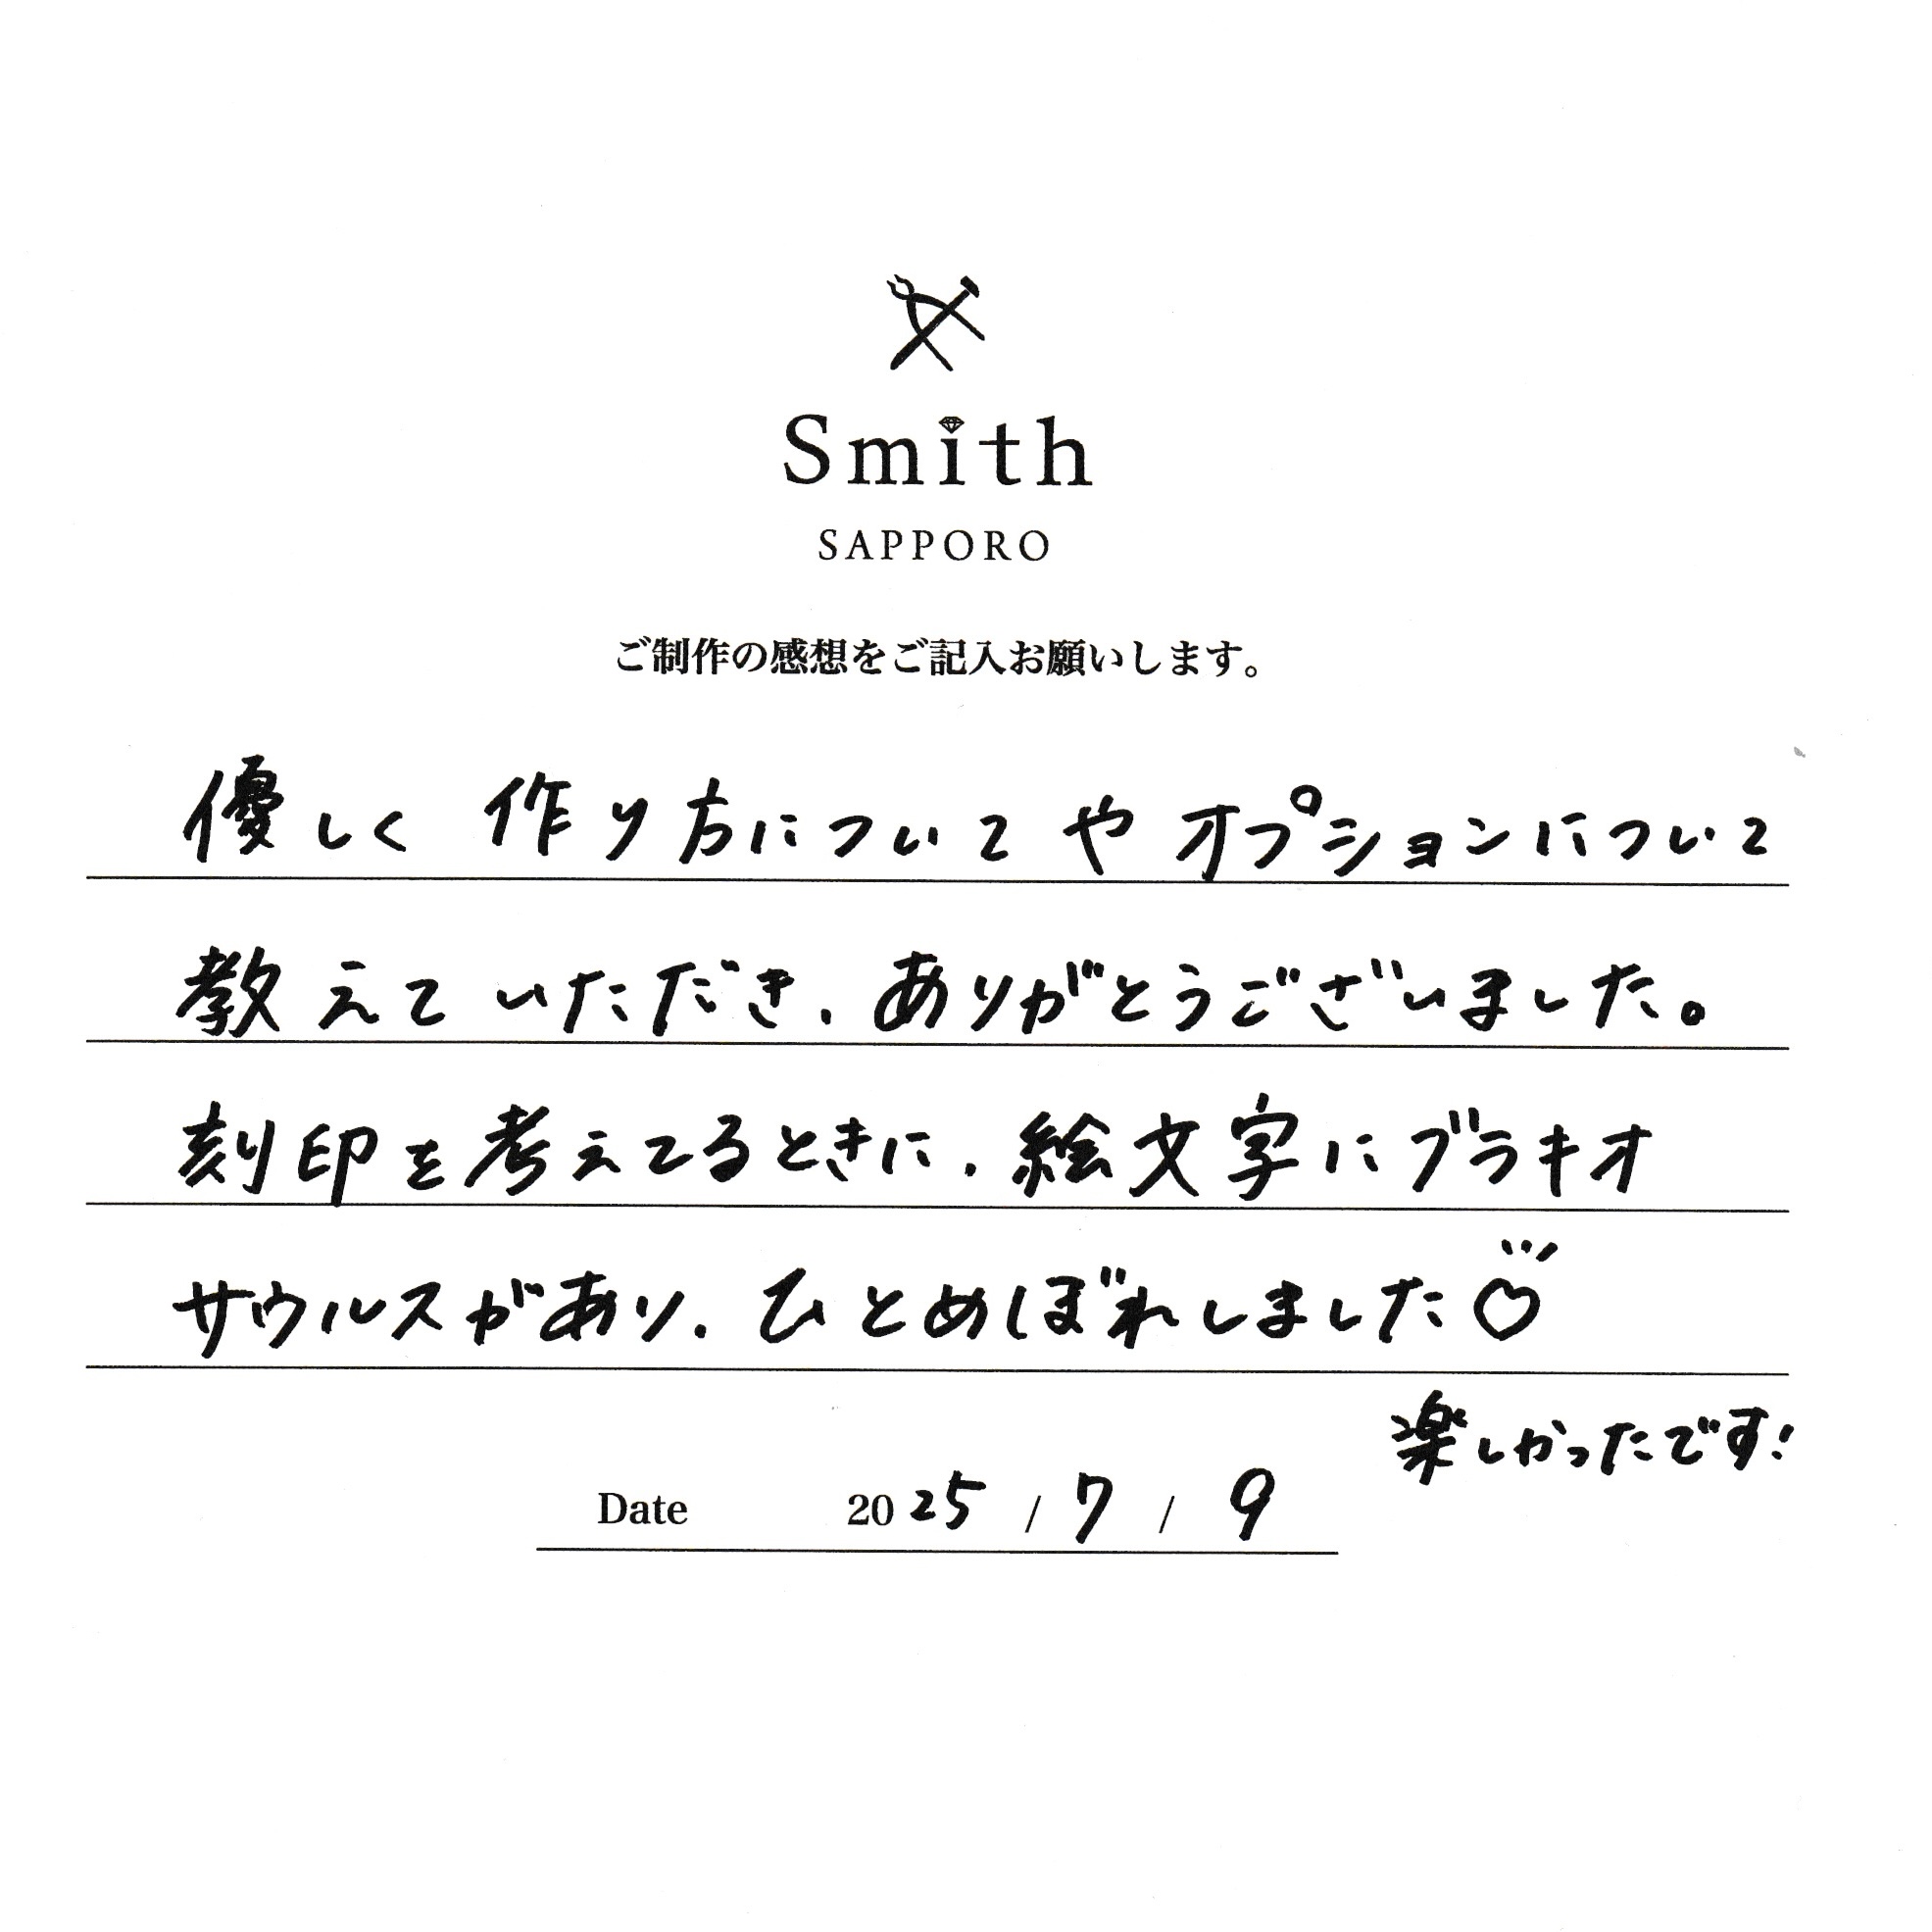 Smith
SAPPORO
ご制作の感想をご記入お願いします。
優しく 作り方についてやオプションについて
教えていただき、ありがとうございました。
刻印を考えてるときに、絵文字にブラキオ
サウルスがあり、ひとめぼれしました♡
楽しかったです!
Date 2025 / 7 / 9